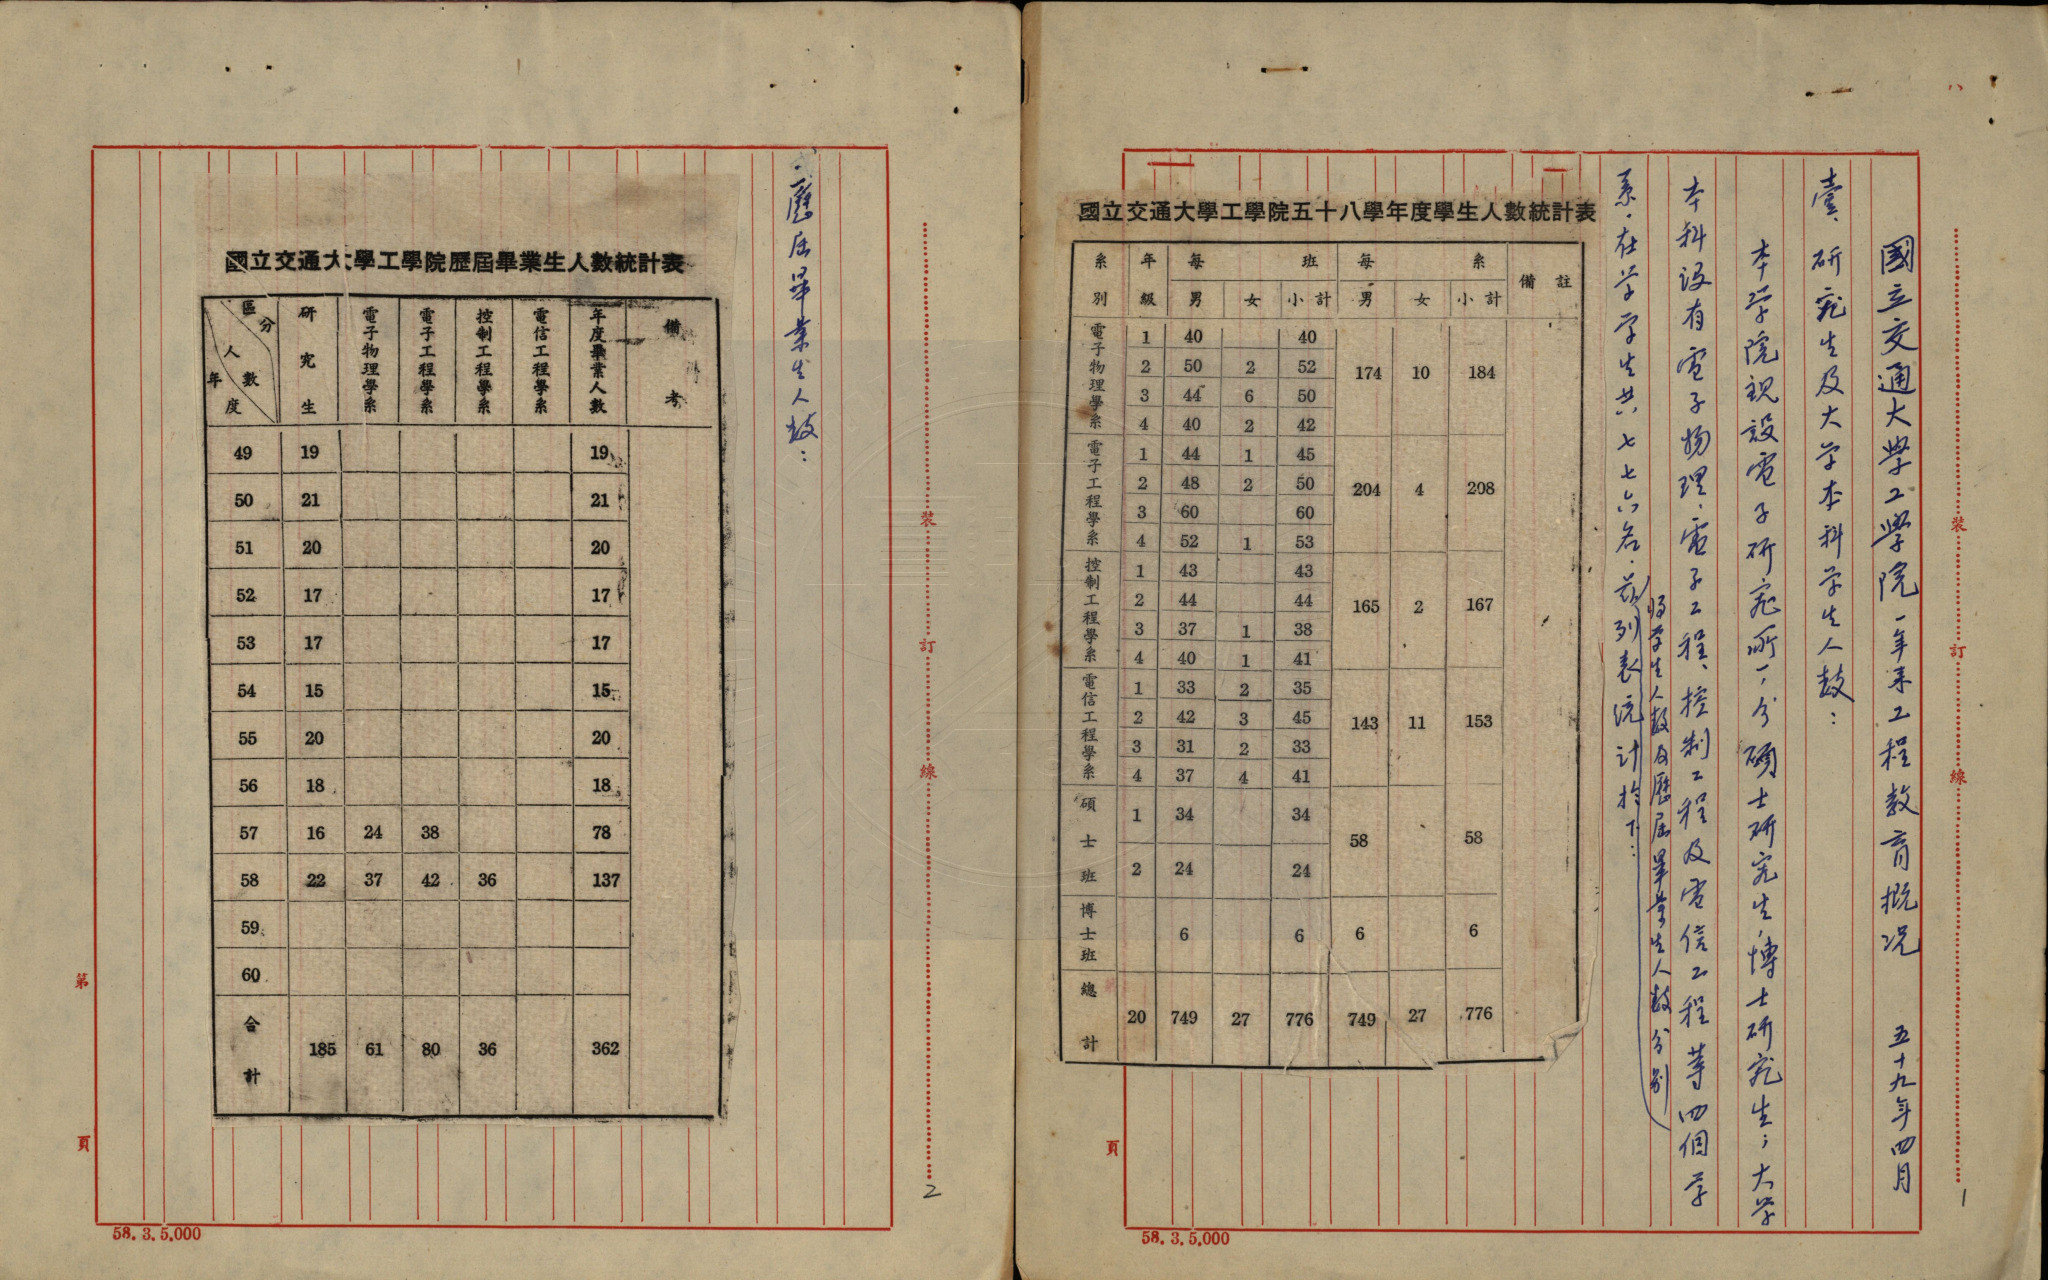 國立交通大學工學院一年來工程教育概況 五十九年四月
壹、研究生及大学本科学生人数：
本学院現設電子研究所一，分碩士研究生，博士研究生；大学
本科设有電子物理、電子工程、控制工程及電信工程等四個学
系。在学学生共七七六名。茲
將學生人數及歷屆畢業生人數分别
列表统计於下：
國立交通大學工學院五十八學年度學生人數統計表
系別 年級 每班 每系 備註
男 女 小計 男 女 小計
電子物理學系 1 40 40 174 10 184
2 50 2 52
3 44 6 50
4 40 2 42
電子工程學系 1 44 1 45 204 4 208
2 48 2 50
3 60 60
4 52 1 53
控制工程學系 1 43 43 165 2 167
2 44 44
3 37 1 38
4 40 1 41
電信工程學系 1 33 2 35 143 11 153
2 42 3 45
3 31 2 33
4 37 4 41
碩士班 1 34 34 58 58
2 24 24
博士班 6 6 6 6
總計 20 749 27 776 749 27 776
裝 訂 線
1
頁
58. 3. 5,000
歷屆畢業生人数：
國立交通大學工學院歷屆畢業生人數統計表
區分 人數 年度 研究生 電子物理學系 電子工程學系 控制工程學系 電信工程學系 年度畢業人數 備考
49 19 19
50 21 21
51 20 20
52 17 17
53 17 17
54 15 15
55 20 20
56 18 18
57 16 24 38 78
58 22 37 42 36 137
59
60
合計 185 61 80 36 362
裝 訂 線
2
第 頁
58. 3. 5,000